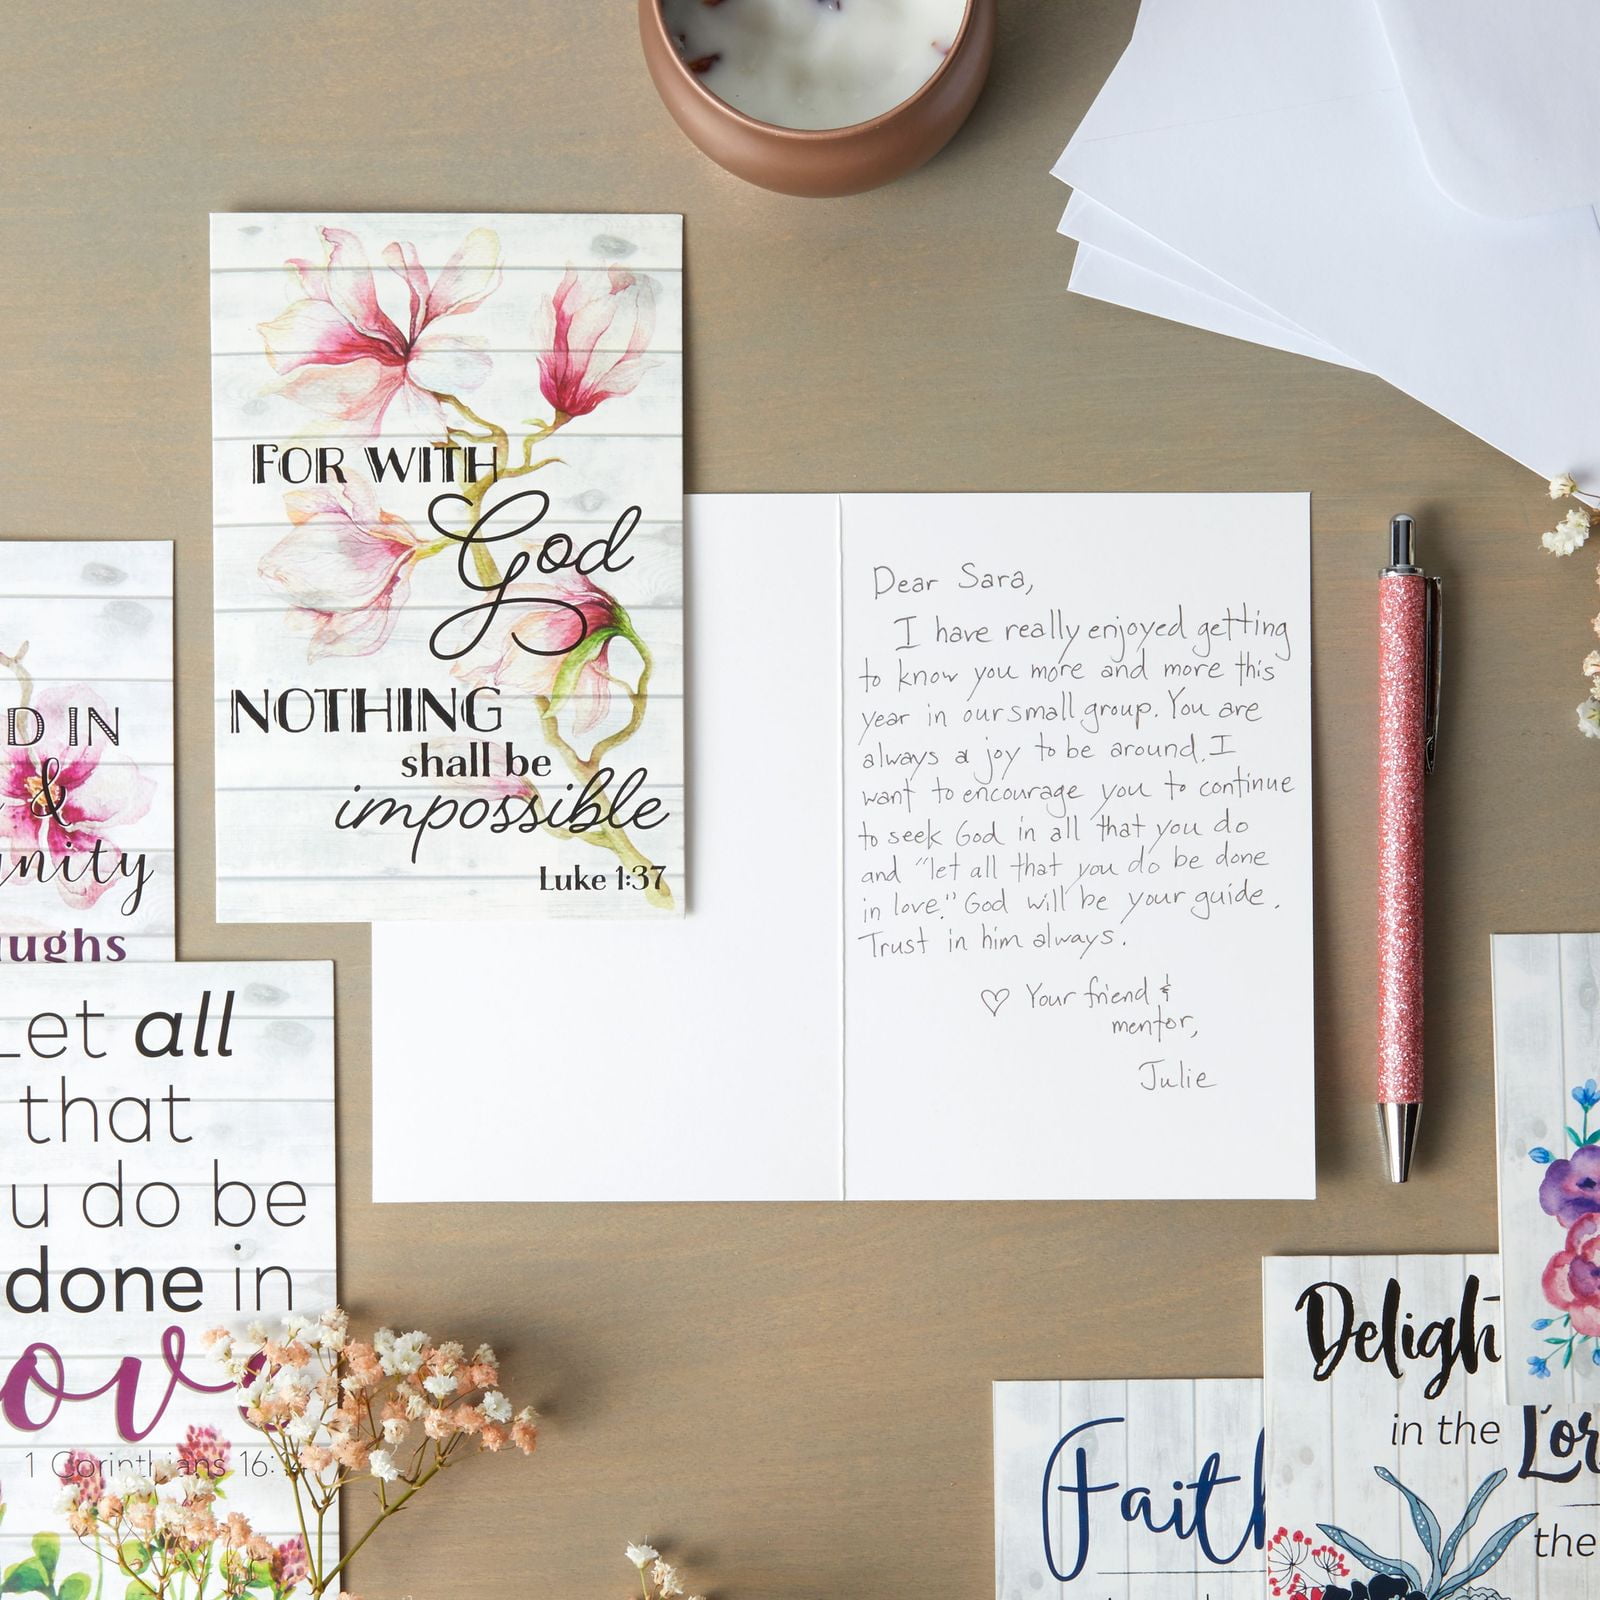 FOR WITH
God
NOTHING
shall be
impossible
Luke 1:37
Dear Sara,
I have really enjoyed getting
to know you more and more this
year in our small group. You are
always a joy to be around. I
want to encourage you to continue
to seek God in all that you do
and "let all that you do be done
in love." God will be your guide.
Trust in him always.
♡ Your friend &
mentor,
Julie
D IN
&
nity
ughs
Let all
that
u do be
done in
ove
1 Corinthians 16:14
Faith
Deligh
in the Lor
the